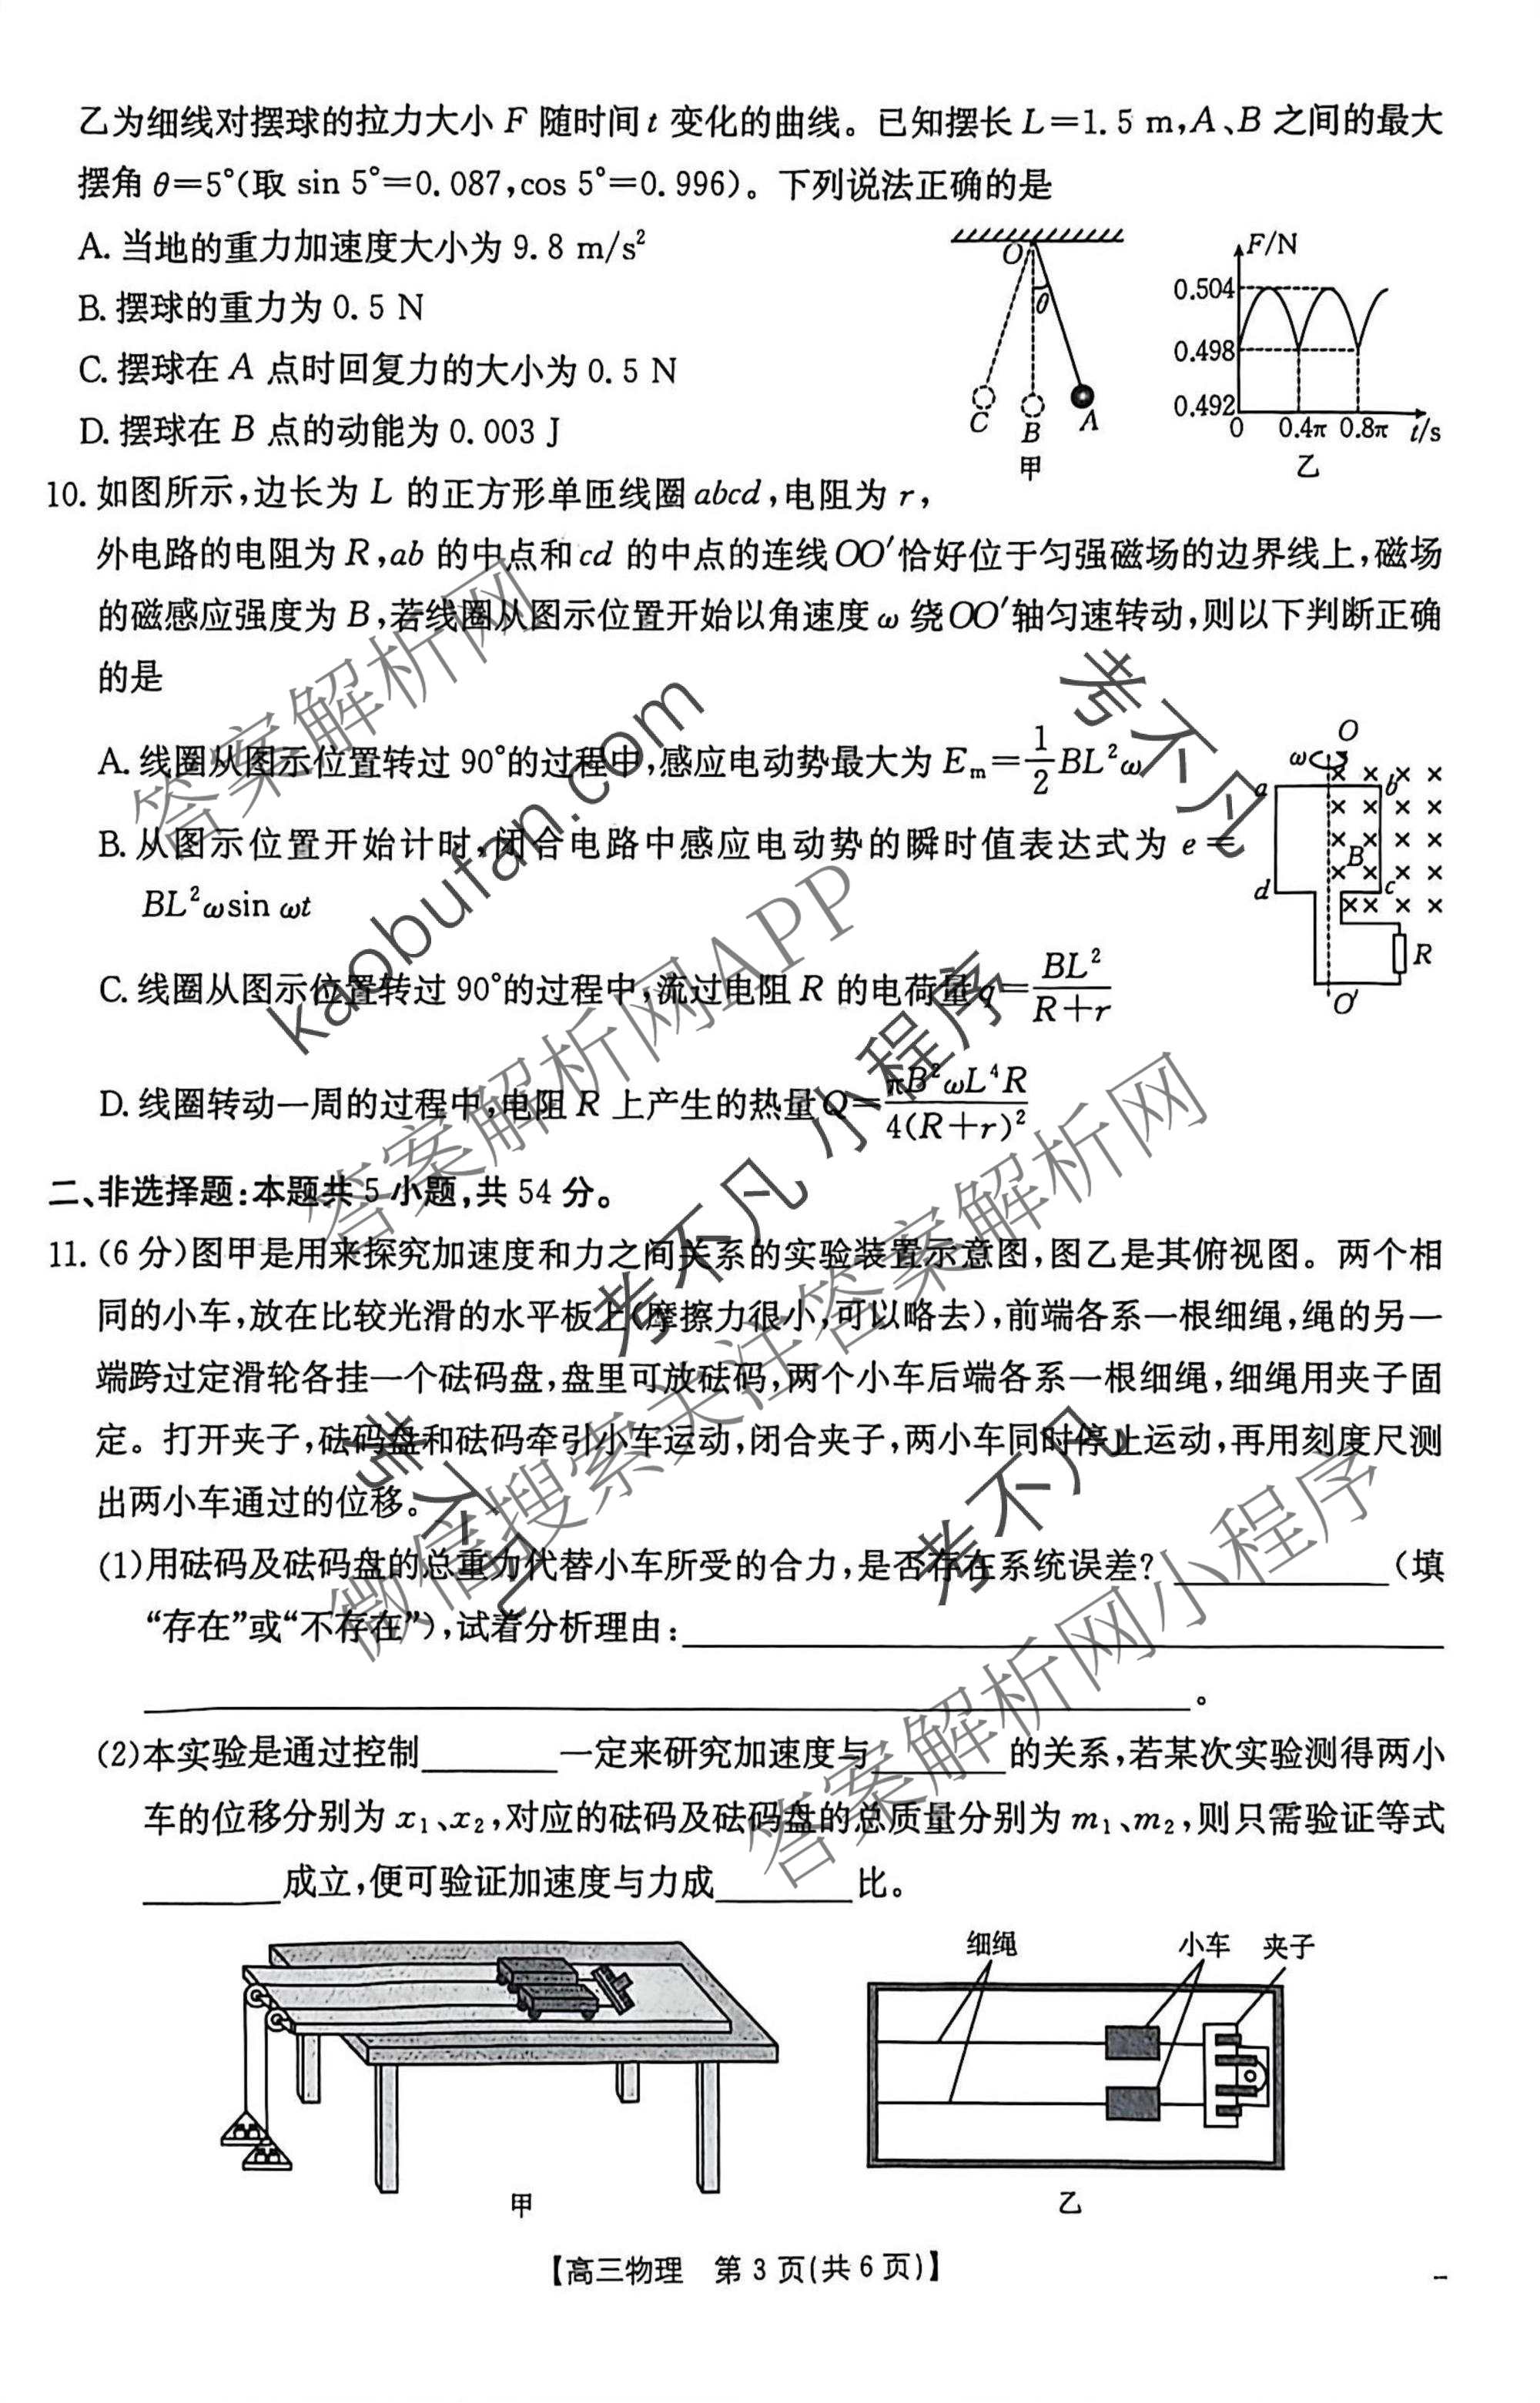 乙为细线对摆球的拉力大小 F 随时间 t 变化的曲线。已知摆长 L=1.5 m,A、B 之间的最大
摆角 θ=5°(取 sin 5°=0.087,cos 5°=0.996)。下列说法正确的是
A. 当地的重力加速度大小为 9.8 m/s²
B. 摆球的重力为 0.5 N
C. 摆球在 A 点时回复力的大小为 0.5 N
D. 摆球在 B 点的动能为 0.003 J
O
θ
C
B
A
甲
F/N
0.504
0.498
0.492
0
0.4π
0.8π
t/s
乙
10. 如图所示,边长为 L 的正方形单匝线圈 abcd,电阻为 r,
外电路的电阻为 R,ab 的中点和 cd 的中点的连线 OO′恰好位于匀强磁场的边界线上,磁场
的磁感应强度为 B,若线圈从图示位置开始以角速度 ω 绕 OO′轴匀速转动,则以下判断正确
的是
A. 线圈从图示位置转过 90°的过程中,感应电动势最大为 Eₘ=1/2 BL²ω
B. 从图示位置开始计时,闭合电路中感应电动势的瞬时值表达式为 e=
BL²ωsin ωt
C. 线圈从图示位置转过 90°的过程中,流过电阻 R 的电荷量 q=BL²/(R+r)
D. 线圈转动一周的过程中,电阻 R 上产生的热量 Q=πB²ωL⁴R/4(R+r)²
O
ω
a
b
B
d
c
R
O′
二、非选择题:本题共 5 小题,共 54 分。
11. (6 分)图甲是用来探究加速度和力之间关系的实验装置示意图,图乙是其俯视图。两个相
同的小车,放在比较光滑的水平板上(摩擦力很小,可以略去),前端各系一根细绳,绳的另一
端跨过定滑轮各挂一个砝码盘,盘里可放砝码,两个小车后端各系一根细绳,细绳用夹子固
定。打开夹子,砝码盘和砝码牵引小车运动,闭合夹子,两小车同时停止运动,再用刻度尺测
出两小车通过的位移。
(1)用砝码及砝码盘的总重力代替小车所受的合力,是否存在系统误差? ________(填
“存在”或“不存在”),试着分析理由:________
________。
(2)本实验是通过控制________一定来研究加速度与________的关系,若某次实验测得两小
车的位移分别为 x₁、x₂,对应的砝码及砝码盘的总质量分别为 m₁、m₂,则只需验证等式
________成立,便可验证加速度与力成________比。
甲
细绳
小车
夹子
乙
【高三物理 第 3 页(共 6 页)】
答案解析网
kaobufan.com
考不凡
答案解析网APP
考不凡 小程序
考不凡
微信搜索关注答案解析网
考不凡
答案解析网小程序